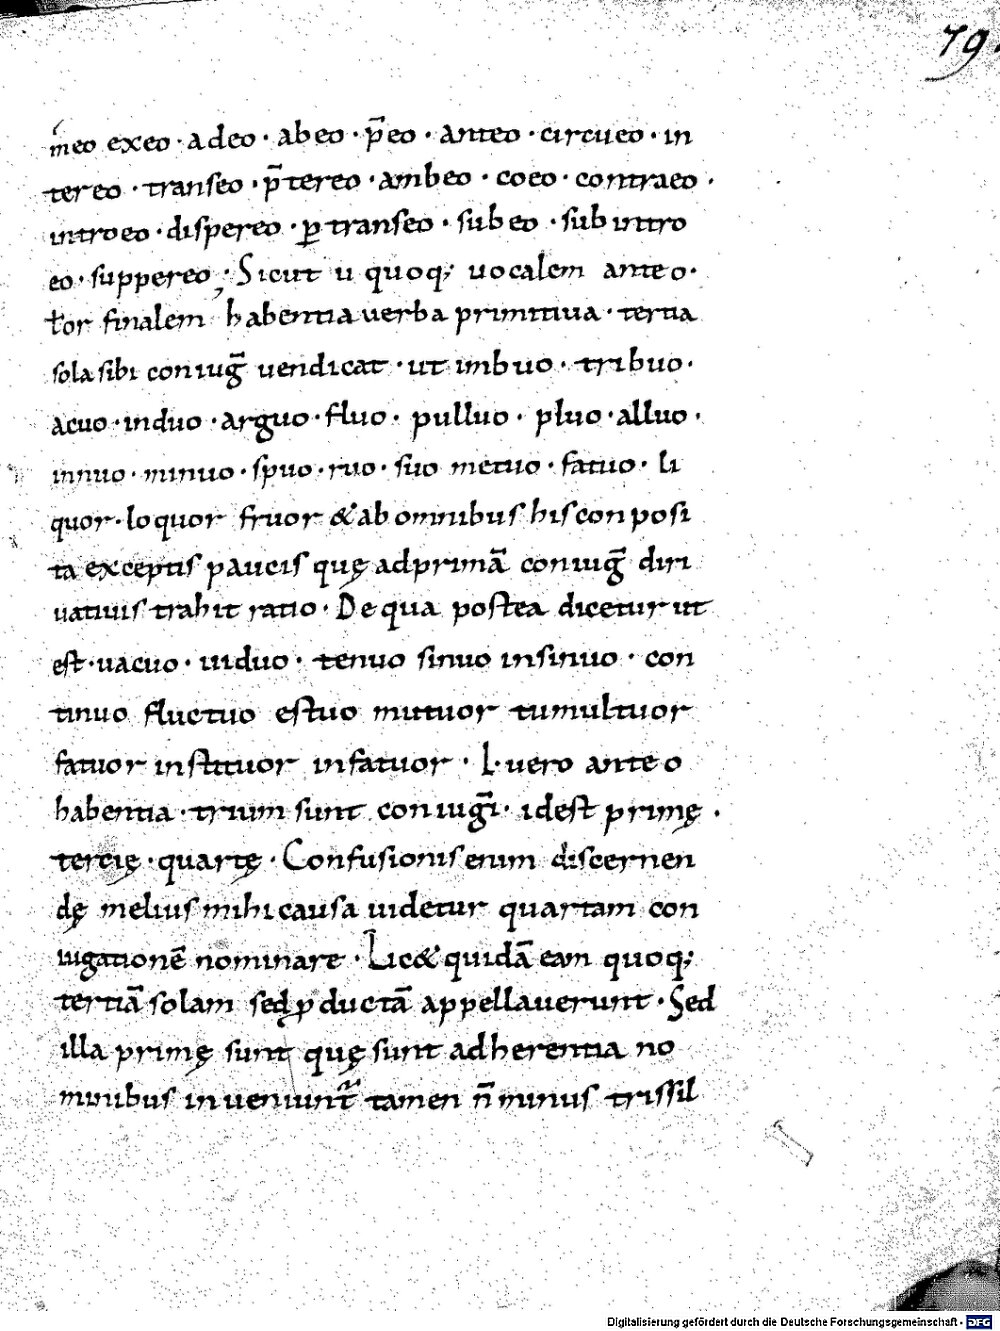 79.
meo exeo · adeo · abeo · p̄eo · anteo · circueo · in
tereo · transeo · p̄tereo · ambeo · coeo · contraeo ·
introeo · dispereo · ꝑtranseo · subeo · subintro
eo · suppereo; Sicut u quoq; uocalem ante o ·
ł or finalem habentia uerba primitiua · tertia
sola sibi coniuḡ uendicat · ut imbuo · tribuo ·
acuo · induo · arguo · fluo · pulluo · pluo · alluo ·
innuo · minuo · spuo · ruo · suo metuo · fatuo · li
quor · loquor fruor & ab omnibus his conposi
ta exceptis paucis quę ad primā coniuḡ diri
uatiuis trahit ratio · De qua postea dicetur ut
est · uacuo · uiduo · tenuo sinuo insinuo · con
tinuo fluctuo estuo mutuor tumultuor
fatuor instituor infatuor · L · uero ante o
habentia · trium sunt coniuḡi · idest primę ·
tercię · quartę · Confusionis enim discernen
dę melius mihi causa uidetur quartam con
iugationē nominare · Lic& quidā eam quoq;
tertiā solam sed ꝓductā appellauerunt · Sed
illa primę sunt quę sunt adherentia no
minibus inueniunt᷑ tamen n̄ minus trissil
Digitalisierung gefördert durch die Deutsche Forschungsgemeinschaft - DFG